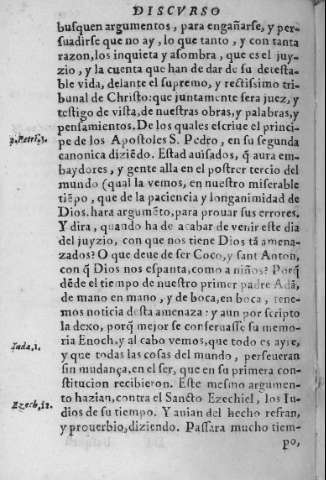 DISCVRSO
busquen argumentos, para engañarse, y per-
suadirse que no ay, lo que tanto, y con tanta
razon, los inquieta y asombra, que es el juy-
zio, y la cuenta que han de dar de su detesta-
ble vida, delante el supremo, y rectissimo tri-
bunal de Christo: que juntamente sera juez, y
testigo de vista, de nuestras obras, y palabras, y
pensamientos. De los quales escriue el princi-
2. Petri, 3.
pe de los Apostoles S. Pedro, en su segunda
canonica diziẽdo. Estad auisados, q̃ aura em-
baydores, y gente alla en el postrer tercio del
mundo (qual la vemos, en nuestro miserable
tiẽpo, que de la paciencia y longanimidad de
Dios. hara argumẽto, para prouar sus errores.
Y dira, quando ha de acabar de venir este dia
del juyzio, con que nos tiene Dios tã amena-
zados? O que deue de ser Coco, y sant Anton,
con q̃ Dios nos espanta, como a niños? Porq̃
dẽde el tiempo de nuestro primer padre Adã,
de mano en mano, y de boca, en boca, tene-
mos noticia desta amenaza: y aun por scripto
la dexo, porq̃ mejor se conseruasse su memo-
Iuda, 1.
ria Enoch. y al cabo vemos, que todo es ayre,
y que todas las cosas del mundo, perseueran
sin mudança, en el ser, que en su primera con-
stitucion recibieron. Este mesmo argumen-
to hazian, contra el Sancto Ezechiel, los Iu-
Ezech, 12.
dios de su tiempo. Y auian del hecho refran,
y prouerbio, diziendo. Passara mucho tiem-
po,